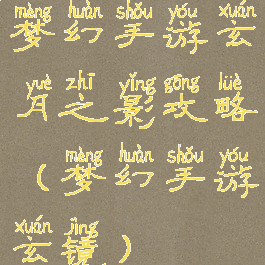 mèng huàn shǒu yóu xuán
梦幻手游玄
yuè zhī yǐng gōng lüè
月之影攻略
mèng huàn shǒu yóu
（梦幻手游
xuán jìng
玄镜）